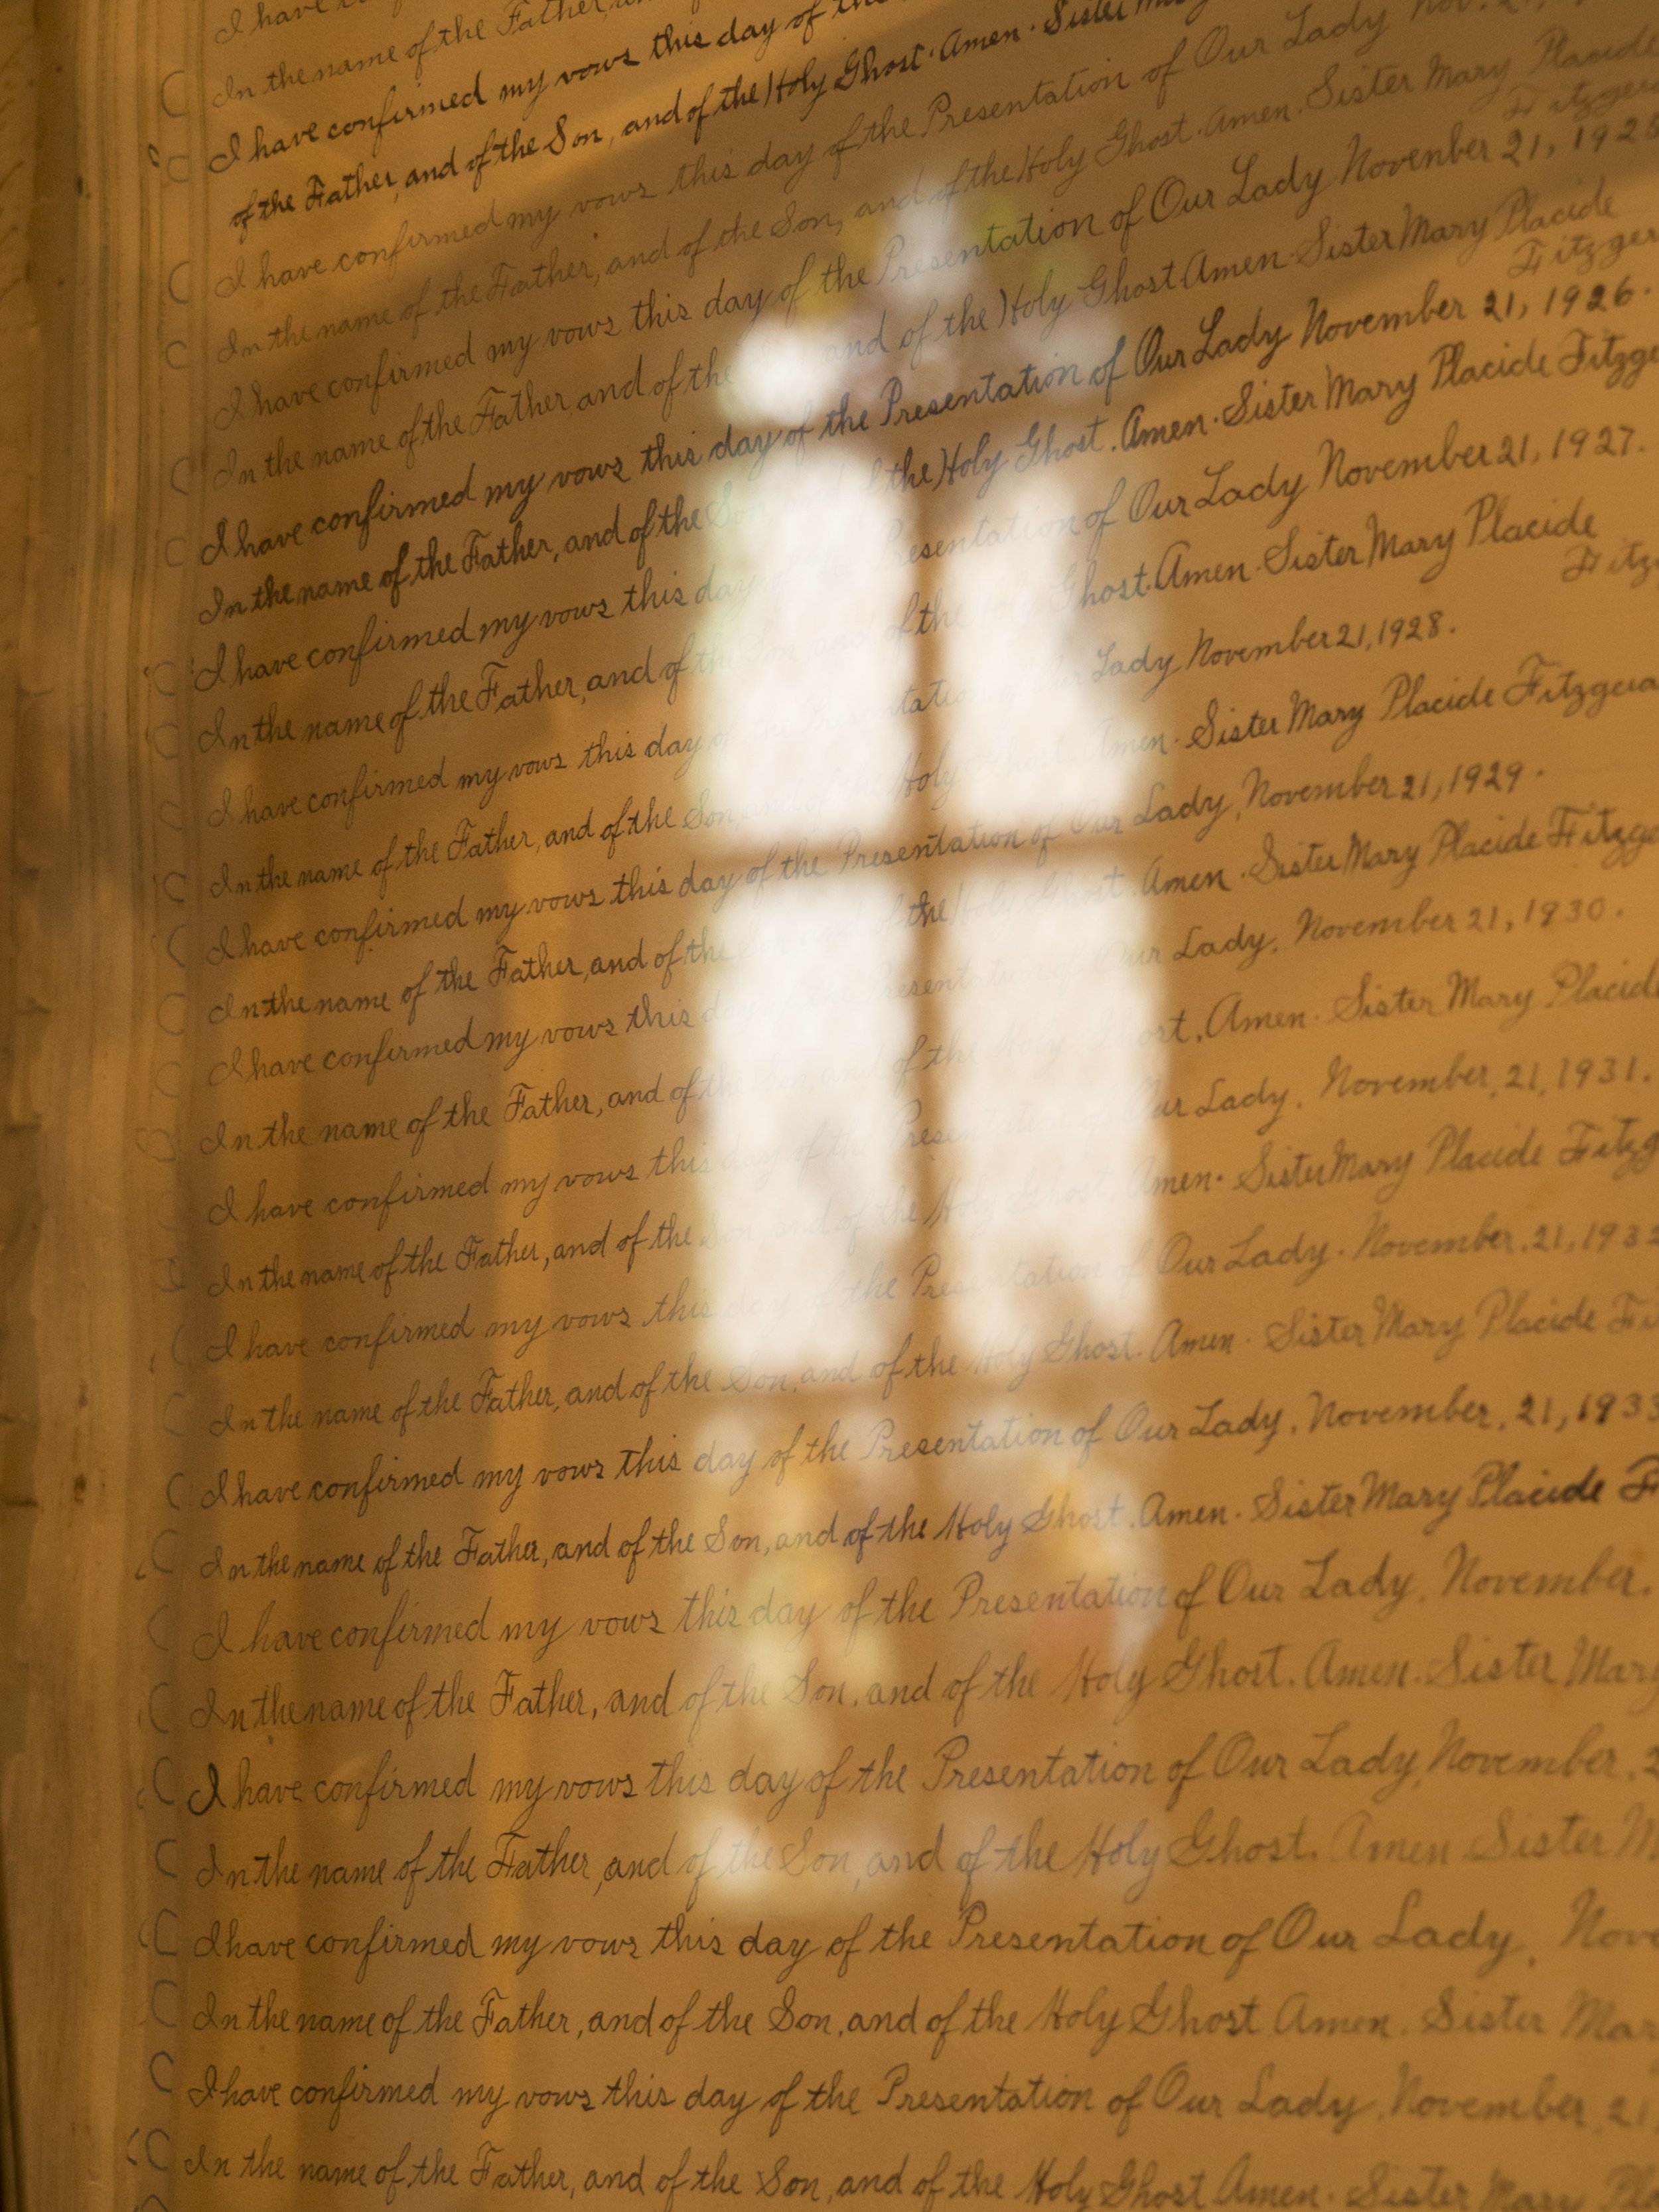 I have
In the name of the Father,
I have confirmed my vows this day of the
of the Father, and of the Son, and of the Holy Ghost. Amen. Sister
I have confirmed my vows this day of the Presentation of Our Lady Nov.
In the name of the Father, and of the Son, and of the Holy Ghost. Amen. Sister Mary Placide
Fitzger
I have confirmed my vows this day of the Presentation of Our Lady Novenber 21, 192
In the name of the Father, and of the and of the Holy Ghost Amen. Sister Mary Placide
Fitzger
I have confirmed my vows this day of the Presentation of Our Lady November 21, 1926.
In the name of the Father, and of the Son the Holy Ghost. Amen. Sister Mary Placide Fitzge
I have confirmed my vows this day Presentation of Our Lady November 21, 1927.
In the name of the Father, and of the Son and of the Ghost. Amen. Sister Mary Placide
Fitzg
I have confirmed my vows this day Our Lady November 21, 1928.
In the name of the Father, and of the Son, Holy Amen. Sister Mary Placide Fitzgera
I have confirmed my vows this day of the Presentation of Our Lady, November 21, 1929.
In the name of the Father, and of the the Holy Ghost. Amen. Sister Mary Placide Fitzge
I have confirmed my vows this Presentation of Our Lady, November 21, 1930.
In the name of the Father, and of the and of the Holy Ghost. Amen. Sister Mary Placide
I have confirmed my vows this day of the Presentation of Our Lady, November, 21, 1931.
In the name of the Father, and of the Son, and of the Holy Amen. Sister Mary Placide Fitzg
I have confirmed my vows this day of the Presentation of Our Lady. November, 21, 193
In the name of the Father, and of the Son, and of the Holy Ghost. Amen. Sister Mary Placide Fi
I have confirmed my vows this day of the Presentation of Our Lady, November, 21, 1933
In the name of the Father, and of the Son, and of the Holy Ghost. Amen. Sister Mary Placide F
I have confirmed my vows this day of the Presentation of Our Lady, November.
In the name of the Father, and of the Son, and of the Holy Ghost. Amen. Sister Mary
I have confirmed my vows this day of the Presentation of Our Lady, November, 2
In the name of the Father, and of the Son, and of the Holy Ghost. Amen Sister M
I have confirmed my vows this day of the Presentation of Our Lady, Nove
In the name of the Father, and of the Son, and of the Holy Ghost Amen. Sister Mar
I have confirmed my vows this day of the Presentation of Our Lady, November, 21
In the name of the Father, and of the Son, and of the Holy Ghost Amen. Sister Mary Pla